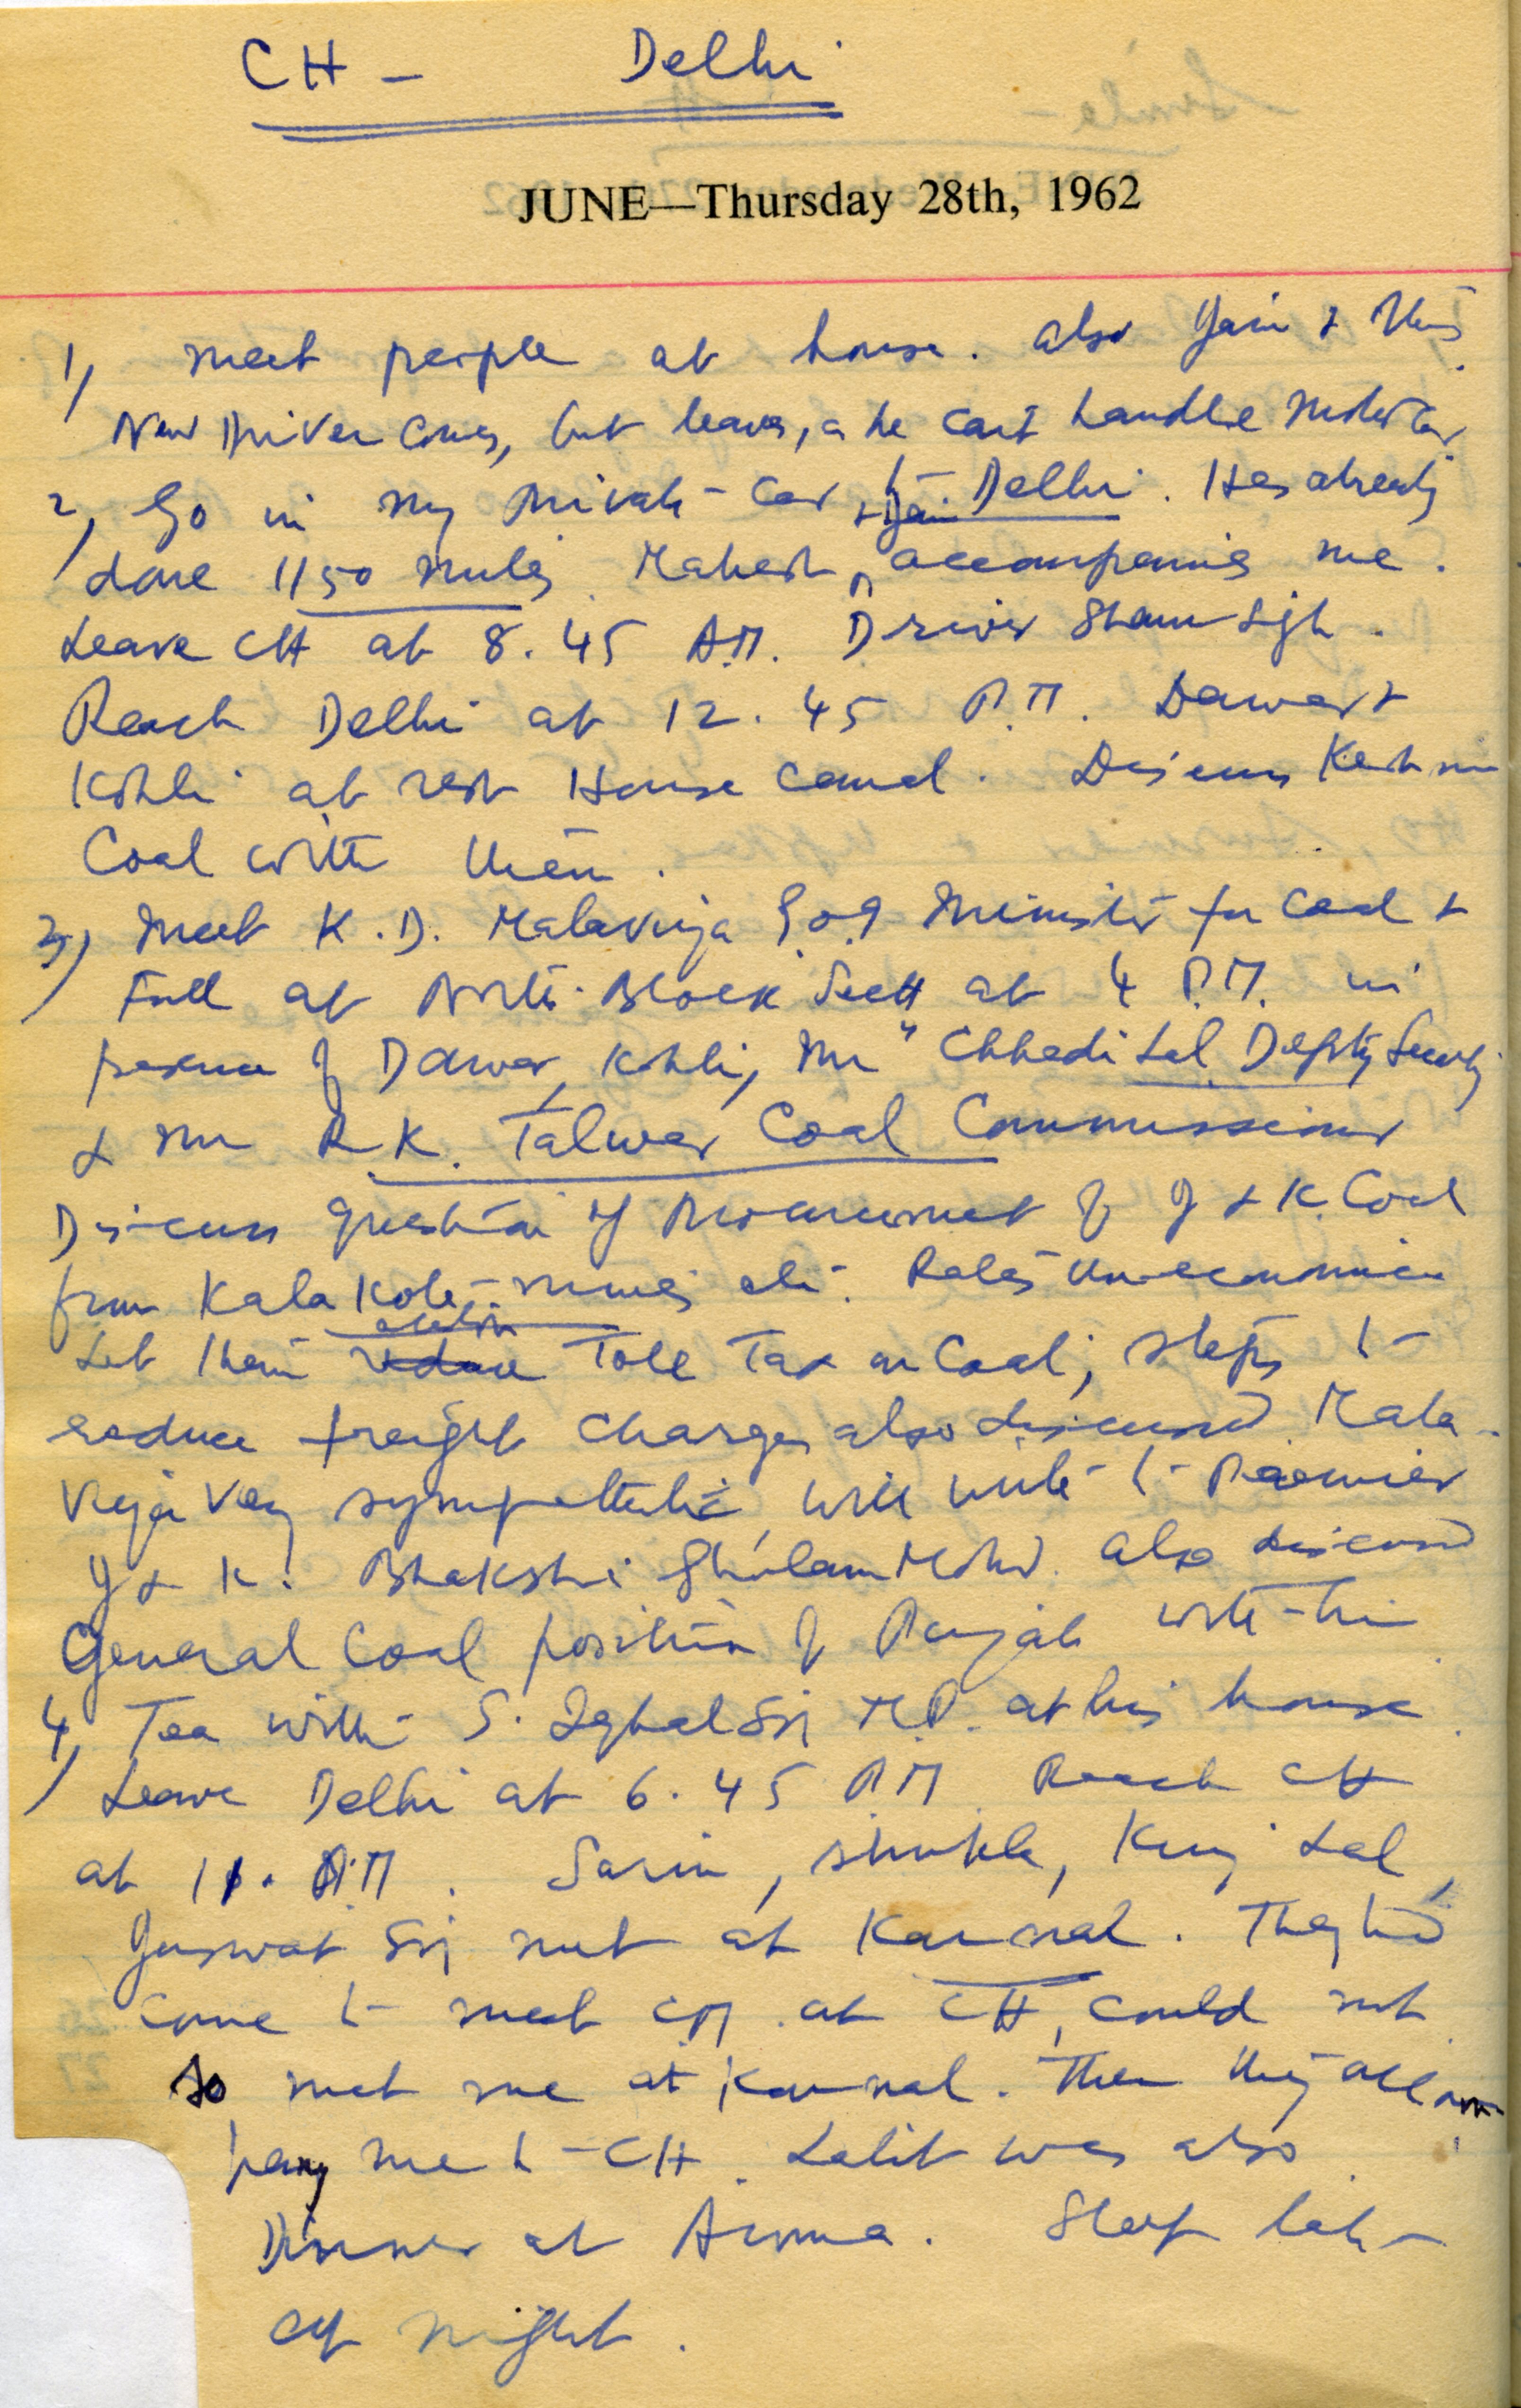 CH - Delhi
JUNE—Thursday 28th, 1962
1, Meet people at house. Also Jain &
New Driver comes, but leaves, as he cant handle Motor Car
2, Go in my Private Car to Delhi. Has already
done 1150 miles. Mahesh & Jain accompanies me.
Leave CH at 8.45 A.M. Driver Sham Sigh.
Reach Delhi at 12.45 P.M. Dawar &
Kohli at rest House Canal. Discuss
Coal with them.
3, Meet K.D. Malaviya G.o.I Minister for Coal &
Fuel at North Block Sectt at 4 P.M. in
presence of Dawar, Kohli, Mr Chhedi Lal Depty Secrty
& Mr R.K. Talwar Coal Commissioner
Discuss question of Procurement of J & K. Coal
from Kala Kote mines etc. Rates Un-economic
Let them abolish reduce Toll Tax on Coal, steps to
reduce freight charges also discussed. Mala-
viya very sympathetic, will write to Premier
J & K. Bhakshi Ghulam Mohd. Also discussed
General Coal position of Punjab with him
4, Tea with S. Iqbal Sij M.P. at his house.
Leave Delhi at 6.45 P.M. Reach CH
at 11. P.M. Sarin, Shukla, Kunj Lal,
Jaswat Sij met at Karnal. They had
come to meet CM. at CH, could not
so met me at Karnal. Then they accom-
pany me to CH. Lalit was also
Dinner at Aroma. Sleep late
at night.